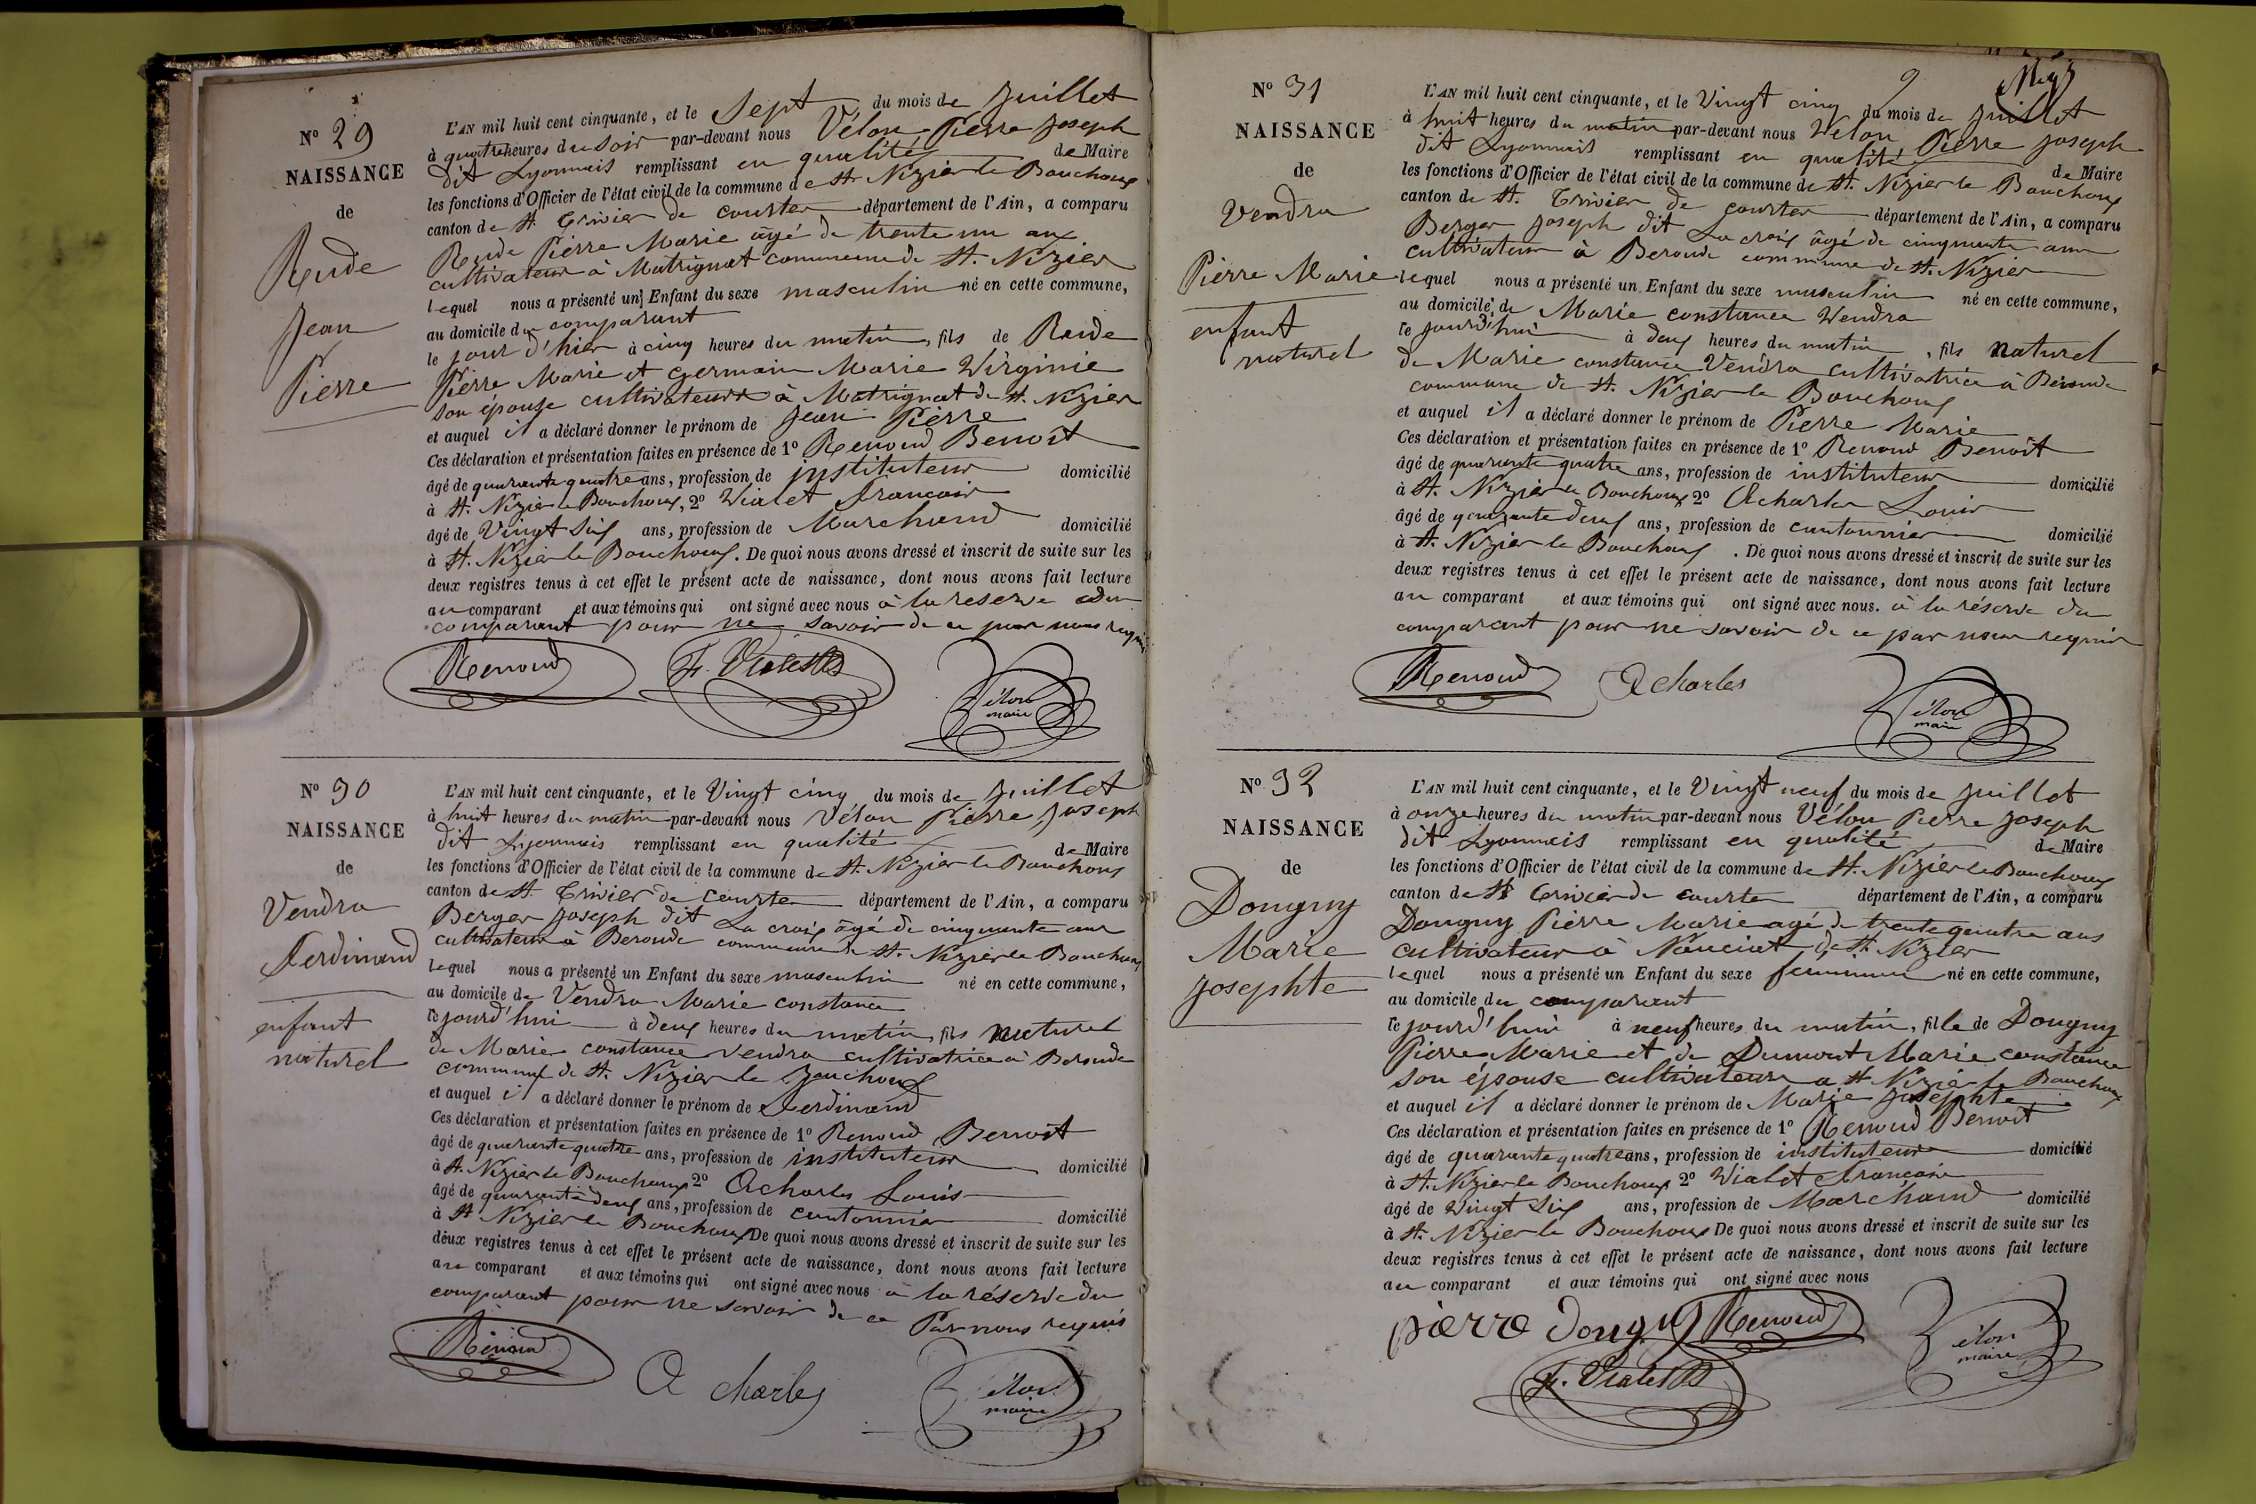 N° 29
NAISSANCE
de
Rude
Jean
Pierre
L'AN mil huit cent cinquante, et le Sept du mois de Juillet
à quatre heures du soir par-devant nous Vélon Pierre Joseph
dit Lyonnais remplissant en qualité de Maire
les fonctions d'Officier de l'état civil de la commune de St. Nizier le Bouchoux
canton de St. Trivier de Courtes département de l'Ain, a comparu
Rude Pierre Marie âgé de trente un ans
cultivateur à Matrignat commune de St. Nizier
lequel nous a présenté un Enfant du sexe masculin né en cette commune,
au domicile du comparant
le jour d'hier à cinq heures du matin, fils de Rude
Pierre Marie et Germain Marie Virginie
son épouse cultivateurs à Matrignat de St. Nizier
et auquel il a déclaré donner le prénom de Jean Pierre
Ces déclaration et présentation faites en présence de 1° Renoud Benoît
âgé de quarante quatre ans, profession de instituteur domicilié
à St. Nizier le Bouchoux, 2° Vialet François
âgé de Vingt Six ans, profession de Marchand domicilié
à St. Nizier le Bouchoux. De quoi nous avons dressé et inscrit de suite sur les
deux registres tenus à cet effet le présent acte de naissance, dont nous avons fait lecture
au comparant et aux témoins qui ont signé avec nous à la reserve du
comparant pour ne savoir de ce par nous requis
Renoud F. Vialet Vélon
maire
N° 30
NAISSANCE
de
Vendra
Ferdinand
enfant
naturel
L'AN mil huit cent cinquante, et le Vingt cinq du mois de Juillet
à huit heures du matin par-devant nous Vélon Pierre Joseph
dit Lyonnais remplissant en qualité de Maire
les fonctions d'Officier de l'état civil de la commune de St. Nizier le Bouchoux
canton de St. Trivier de Courtes département de l'Ain, a comparu
Berger Joseph dit La croix âgé de cinquante ans
cultivateur à Beroude commune de St. Nizier le Bouchoux
lequel nous a présenté un Enfant du sexe masculin né en cette commune,
au domicile de Vendra Marie constance
le jourd'hui à deux heures du matin, fils naturel
de Marie constance Vendra cultivatrice à Beroude
commune de St. Nizier le Bouchoux
et auquel il a déclaré donner le prénom de Ferdinand
Ces déclaration et présentation faites en présence de 1° Renoud Benoît
âgé de quarante quatre ans, profession de instituteur domicilié
à St. Nizier le Bouchoux 2° Acharles Louis
âgé de quarante deux ans, profession de cantonnier domicilié
à St. Nizier le Bouchoux De quoi nous avons dressé et inscrit de suite sur les
deux registres tenus à cet effet le présent acte de naissance, dont nous avons fait lecture
au comparant et aux témoins qui ont signé avec nous à la réserve du
comparant pour ne savoir de ce Par nous requis
Renoud A charles Vélon
maire
9
N° 31
NAISSANCE
de
Vendra
Pierre Marie
enfant
naturel
L'AN mil huit cent cinquante, et le Vingt cinq du mois de Juillet
à huit heures du matin par-devant nous Vélon Pierre Joseph
dit Lyonnais remplissant en qualité de Maire
les fonctions d'Officier de l'état civil de la commune de St. Nizier le Bouchoux
canton de St. Trivier de Courtes département de l'Ain, a comparu
Berger Joseph dit La croix âgé de cinquante ans
cultivateur à Beroude commune de St. Nizier
lequel nous a présenté un Enfant du sexe masculin né en cette commune,
au domicile de Marie constance Vendra
le jourd'hui à deux heures du matin, fils naturel
de Marie constance Vendra cultivatrice à Beroude
commune de St. Nizier le Bouchoux
et auquel il a déclaré donner le prénom de Pierre Marie
Ces déclaration et présentation faites en présence de 1° Renoud Benoît
âgé de quarante quatre ans, profession de instituteur domicilié
à St. Nizier le Bouchoux 2° Acharles Louis
âgé de quarante deux ans, profession de cantonnier domicilié
à St. Nizier le Bouchoux. De quoi nous avons dressé et inscrit de suite sur les
deux registres tenus à cet effet le présent acte de naissance, dont nous avons fait lecture
au comparant et aux témoins qui ont signé avec nous. à la réserve du
comparant pour ne savoir de ce par nous requis
Renoud Acharles Vélon
maire
N° 32
NAISSANCE
de
Dougny
Marie
Josephte
L'AN mil huit cent cinquante, et le Vingt neuf du mois de Juillet
à onze heures du matin par-devant nous Vélon Pierre Joseph
dit Lyonnais remplissant en qualité de Maire
les fonctions d'Officier de l'état civil de la commune de St. Nizier le Bouchoux
canton de St Trivier de Courtes département de l'Ain, a comparu
Dougny Pierre Marie agé de trente quatre ans
cultivateur à Nanciat de St. Nizier
lequel nous a présenté un Enfant du sexe feminin né en cette commune,
au domicile du comparant
le jourd'hui à neuf heures du matin, fille de Dougny
Pierre Marie et de Dumont Marie constance
son épouse cultivateurs a St Nizier le Bouchoux
et auquel il a déclaré donner le prénom de Marie Josephte
Ces déclaration et présentation faites en présence de 1° Renoud Benoit
âgé de quarante quatre ans, profession de instituteur domicilié
à St. Nizier le Bouchoux 2° Vialet François
âgé de Vingt Six ans, profession de Marchand domicilié
à St. Nizier le Bouchoux De quoi nous avons dressé et inscrit de suite sur les
deux registres tenus à cet effet le présent acte de naissance, dont nous avons fait lecture
au comparant et aux témoins qui ont signé avec nous
pierre Dougny Renoud Vélon
maire
F. Vialet